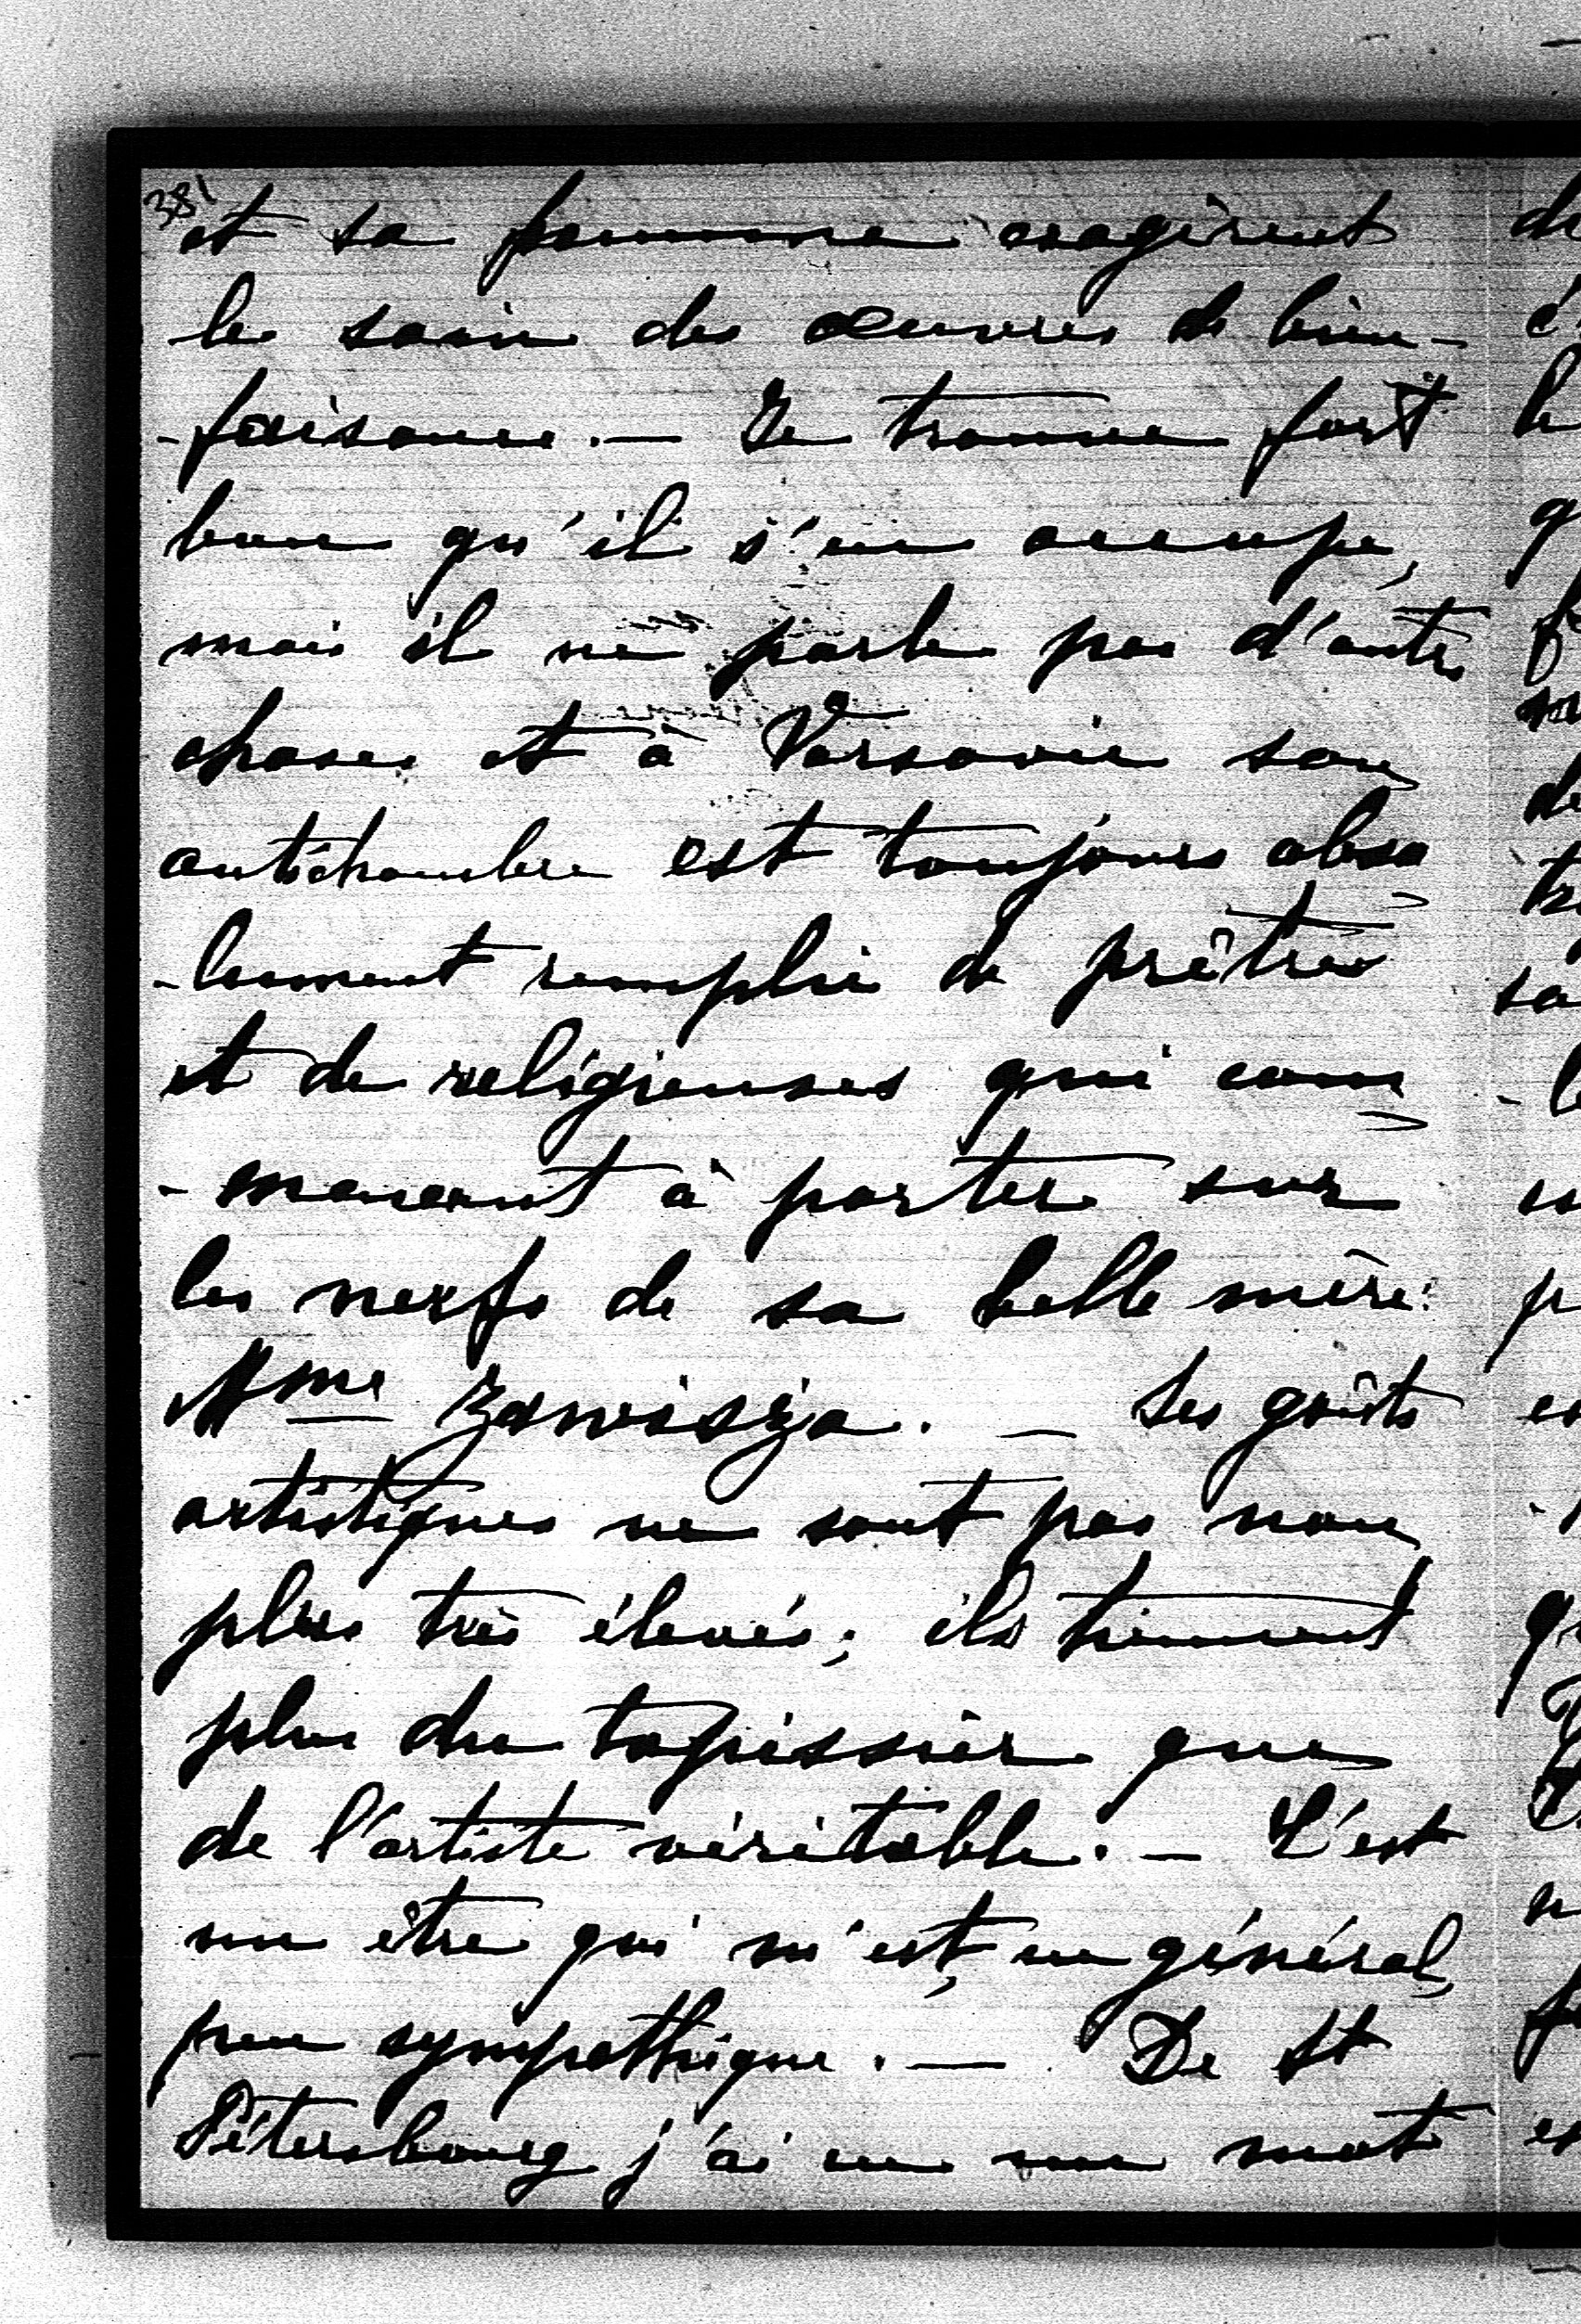 381
et sa femme exagèrent
le soin des œuvres de bien-
-faisance. — Je trouve fort
bon qu'il s'en occupe,
mais il ne parle pas d'autre
choses et à Varsovie son
antichambre est toujours abso
-lument remplie de prêtres
et de religieuses qui com
-mencent à porter sur
les nerfs de sa belle mère
Mme Zawisza. — Ses goûts
artistiques ne sont pas non
plus très élevés; ils tiennent
plus du tapissier que
de l'artiste véritable. — C'est
un être qui m'est, en général,
peu sympathique. — De St
Pétersbourg j'ai eu un mot